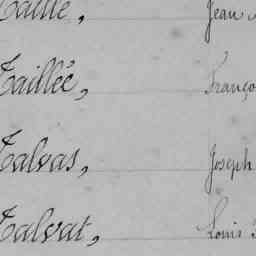 Taillé, Jean
Taillée, Franço
Talvas, Joseph
Talvat, Louis